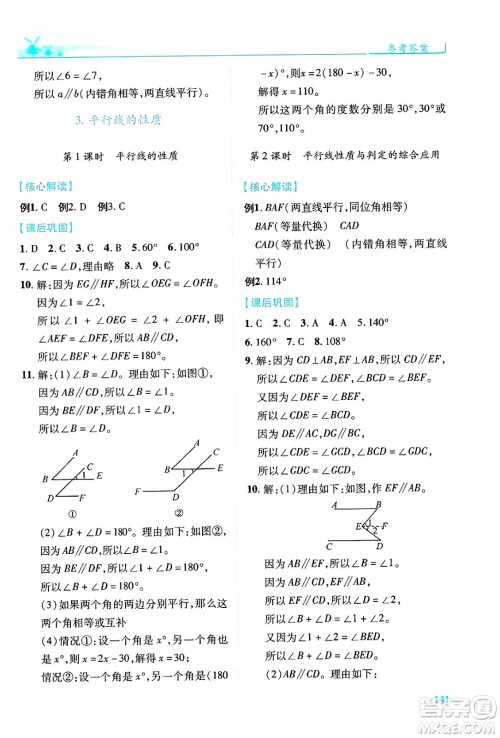 参考答案
所以∠6=∠7，
所以a∥b(内错角相等，两直线平行)
3. 平行线的性质
第1课时 平行线的性质
【核心解读】
例1. C 例2. D 例3. C
【课后巩固】
1. D 2. C 3. A 4. B 5. 60° 6. 70°
7. ∠C=∠D，理由略 8. A 9. C
10. 解：因为EG∥HF，所以∠OEG=∠OFH.
因为∠1=∠2，
所以∠1+∠OEG=∠2+∠OFH，
即∠AEF=∠DFE，
所以AB∥CD，
所以∠B+∠BFD=180°.
11. 解：(1)∠B=∠D. 理由如下：如图①，
因为AB∥CD，所以∠B=∠1.
因为BE∥DF，所以∠1=∠D，
所以∠B=∠D.
A C
1
B E
D F
①
A C
B 1 E
F D
②
(2)∠B+∠D=180°. 理由如下：如图②，
因为AB∥CD，所以∠B=∠1.
因为BE∥DF，所以∠1+∠D=180°，
所以∠B+∠D=180°.
(3)如果两个角的两边分别平行，那么这
两个角相等或互补
(4)情况①：设一个角为x°，则另一个角
为x°. 则x=2x-30，解得x=30；
情况②：设一个角为x°，则另一个角为(180
-x)°. 则x=2(180-x)-30，
解得x=110.
所以这两个角的度数分别是30°，30°或110°，
70°.
第2课时 平行线性质与判定的综合应用
【核心解读】
例1. BAF(两直线平行，同位角相等)
BAF(等量代换)
CAD(等量代换) (内错角相等，两直线
平行)
例2. 114°
【课后巩固】
1. C 2. C 3. A 4. A 5. 140°
6. 160° 7. C 8. 108°
9. 解：因为CD⊥AB，EF⊥AB，所以CD∥EF，
所以∠CDE=∠DEF，∠BCD=∠BEF.
又因为∠DEF=∠BEF，
所以∠CDE=∠BCD，所以BC∥DE，
所以∠CDE=∠BCD，∠BED=∠GDC，
所以∠BCD=∠GDC，
所以DG∥BC.
10. 解：(1)理由如下：如图，作EF∥AB.
A B
E 1 F
2
C D
因为AB∥EF，所以∠B=∠1.
因为AB∥CD，
所以EF∥CD，
所以∠D=∠2，
所以∠B+∠D=∠1+∠2.
又因为∠1+∠2=∠BED，
所以∠B+∠D=∠BED.
141